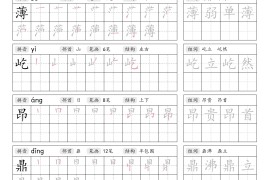 薄 薄弱单薄
拼音 yì 部首 山 笔画 6笔 结构 左右 组词 屹立 屹然
屹 屹立屹然
拼音 áng 部首 日 笔画 8笔 结构 上下 组词 昂贵 昂首
昂 昂贵昂首
拼音 dǐng 部首 鼎 笔画 12笔 结构 半包围 组词 鼎沸 鼎立
鼎 鼎沸鼎立